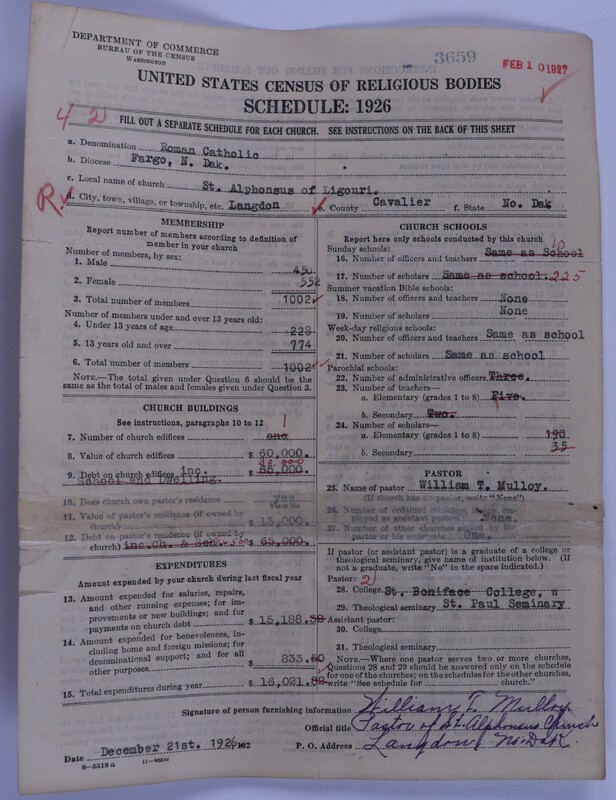 DEPARTMENT OF COMMERCE
BUREAU OF THE CENSUS
WASHINGTON
3659
FEB 10 1927
UNITED STATES CENSUS OF RELIGIOUS BODIES
SCHEDULE: 1926
4 2
FILL OUT A SEPARATE SCHEDULE FOR EACH CHURCH. SEE INSTRUCTIONS ON THE BACK OF THIS SHEET
a. Denomination Roman Catholic
b. Diocese Fargo, N. Dak.
c. Local name of church St. Alphonsus of Ligouri.
R.
d. City, town, village, or township, etc. Langdon e. County Cavalier f. State No. Dak
MEMBERSHIP
Report number of members according to definition of
member in your church
Number of members, by sex:
1. Male 450
2. Female 552
3. Total number of members 1002
Number of members under and over 13 years old:
4. Under 13 years of age 228
5. 13 years old and over 774
6. Total number of members 1002
NOTE.—The total given under Question 6 should be
the same as the total of males and females given under Question 3.
CHURCH BUILDINGS
See instructions, paragraphs 10 to 12
1
7. Number of church edifices one
8. Value of church edifices $ 60,000.
9. Debt on church edifices inc. $ 65,000.
School and Dwelling.
10. Does church own pastor's residence yes
Yes or No
11. Value of pastor's residence (if owned by
church) $ 15,000.
12. Debt on pastor's residence (if owned by
church) inc.Ch. & Sch. $ 65,000.
EXPENDITURES
Amount expended by your church during last fiscal year
13. Amount expended for salaries, repairs,
and other running expenses; for im-
provements or new buildings; and for
payments on church debt $ 15,188.
14. Amount expended for benevolences, in-
cluding home and foreign missions; for
denominational support; and for all
other purposes $ 833.
15. Total expenditures during year $ 16,021.
CHURCH SCHOOLS
Report here only schools conducted by this church
Sunday schools: 10
16. Number of officers and teachers Same as School
17. Number of scholars Same as school. 225
Summer vacation Bible schools:
18. Number of officers and teachers None
19. Number of scholars None
Week-day religious schools:
20. Number of officers and teachers Same as school
21. Number of scholars Same as school
Parochial schools:
22. Number of administrative officers Three.
23. Number of teachers—
a. Elementary (grades 1 to 8) Five.
b. Secondary Two.
24. Number of scholars—
a. Elementary (grades 1 to 8) 190
b. Secondary 35
PASTOR
25. Name of pastor William T. Mulloy.
(If church has no pastor, write "None")
26. Number of ordained ministers, if any, em-
ployed as assistant pastor None.
27. Number of other churches served by the
pastor or his assistants One.
If pastor (or assistant pastor) is a graduate of a college or
theological seminary, give name of institution below. (If
not a graduate, write "No" in the space indicated.)
Pastor: 2
28. College St. Boniface College, W
29. Theological seminary St. Paul Seminary
Assistant pastor:
30. College
31. Theological seminary
NOTE.—Where one pastor serves two or more churches,
Questions 28 and 29 should be answered only on the schedule
for one of the churches; on the schedules for the other churches,
write "See schedule for church."
Signature of person furnishing information William T. Mulloy
Official title Pastor of St. Alphonsus Church
Date December 21st. 1926 192 P. O. Address Langdon No. Dak.
8-5518a